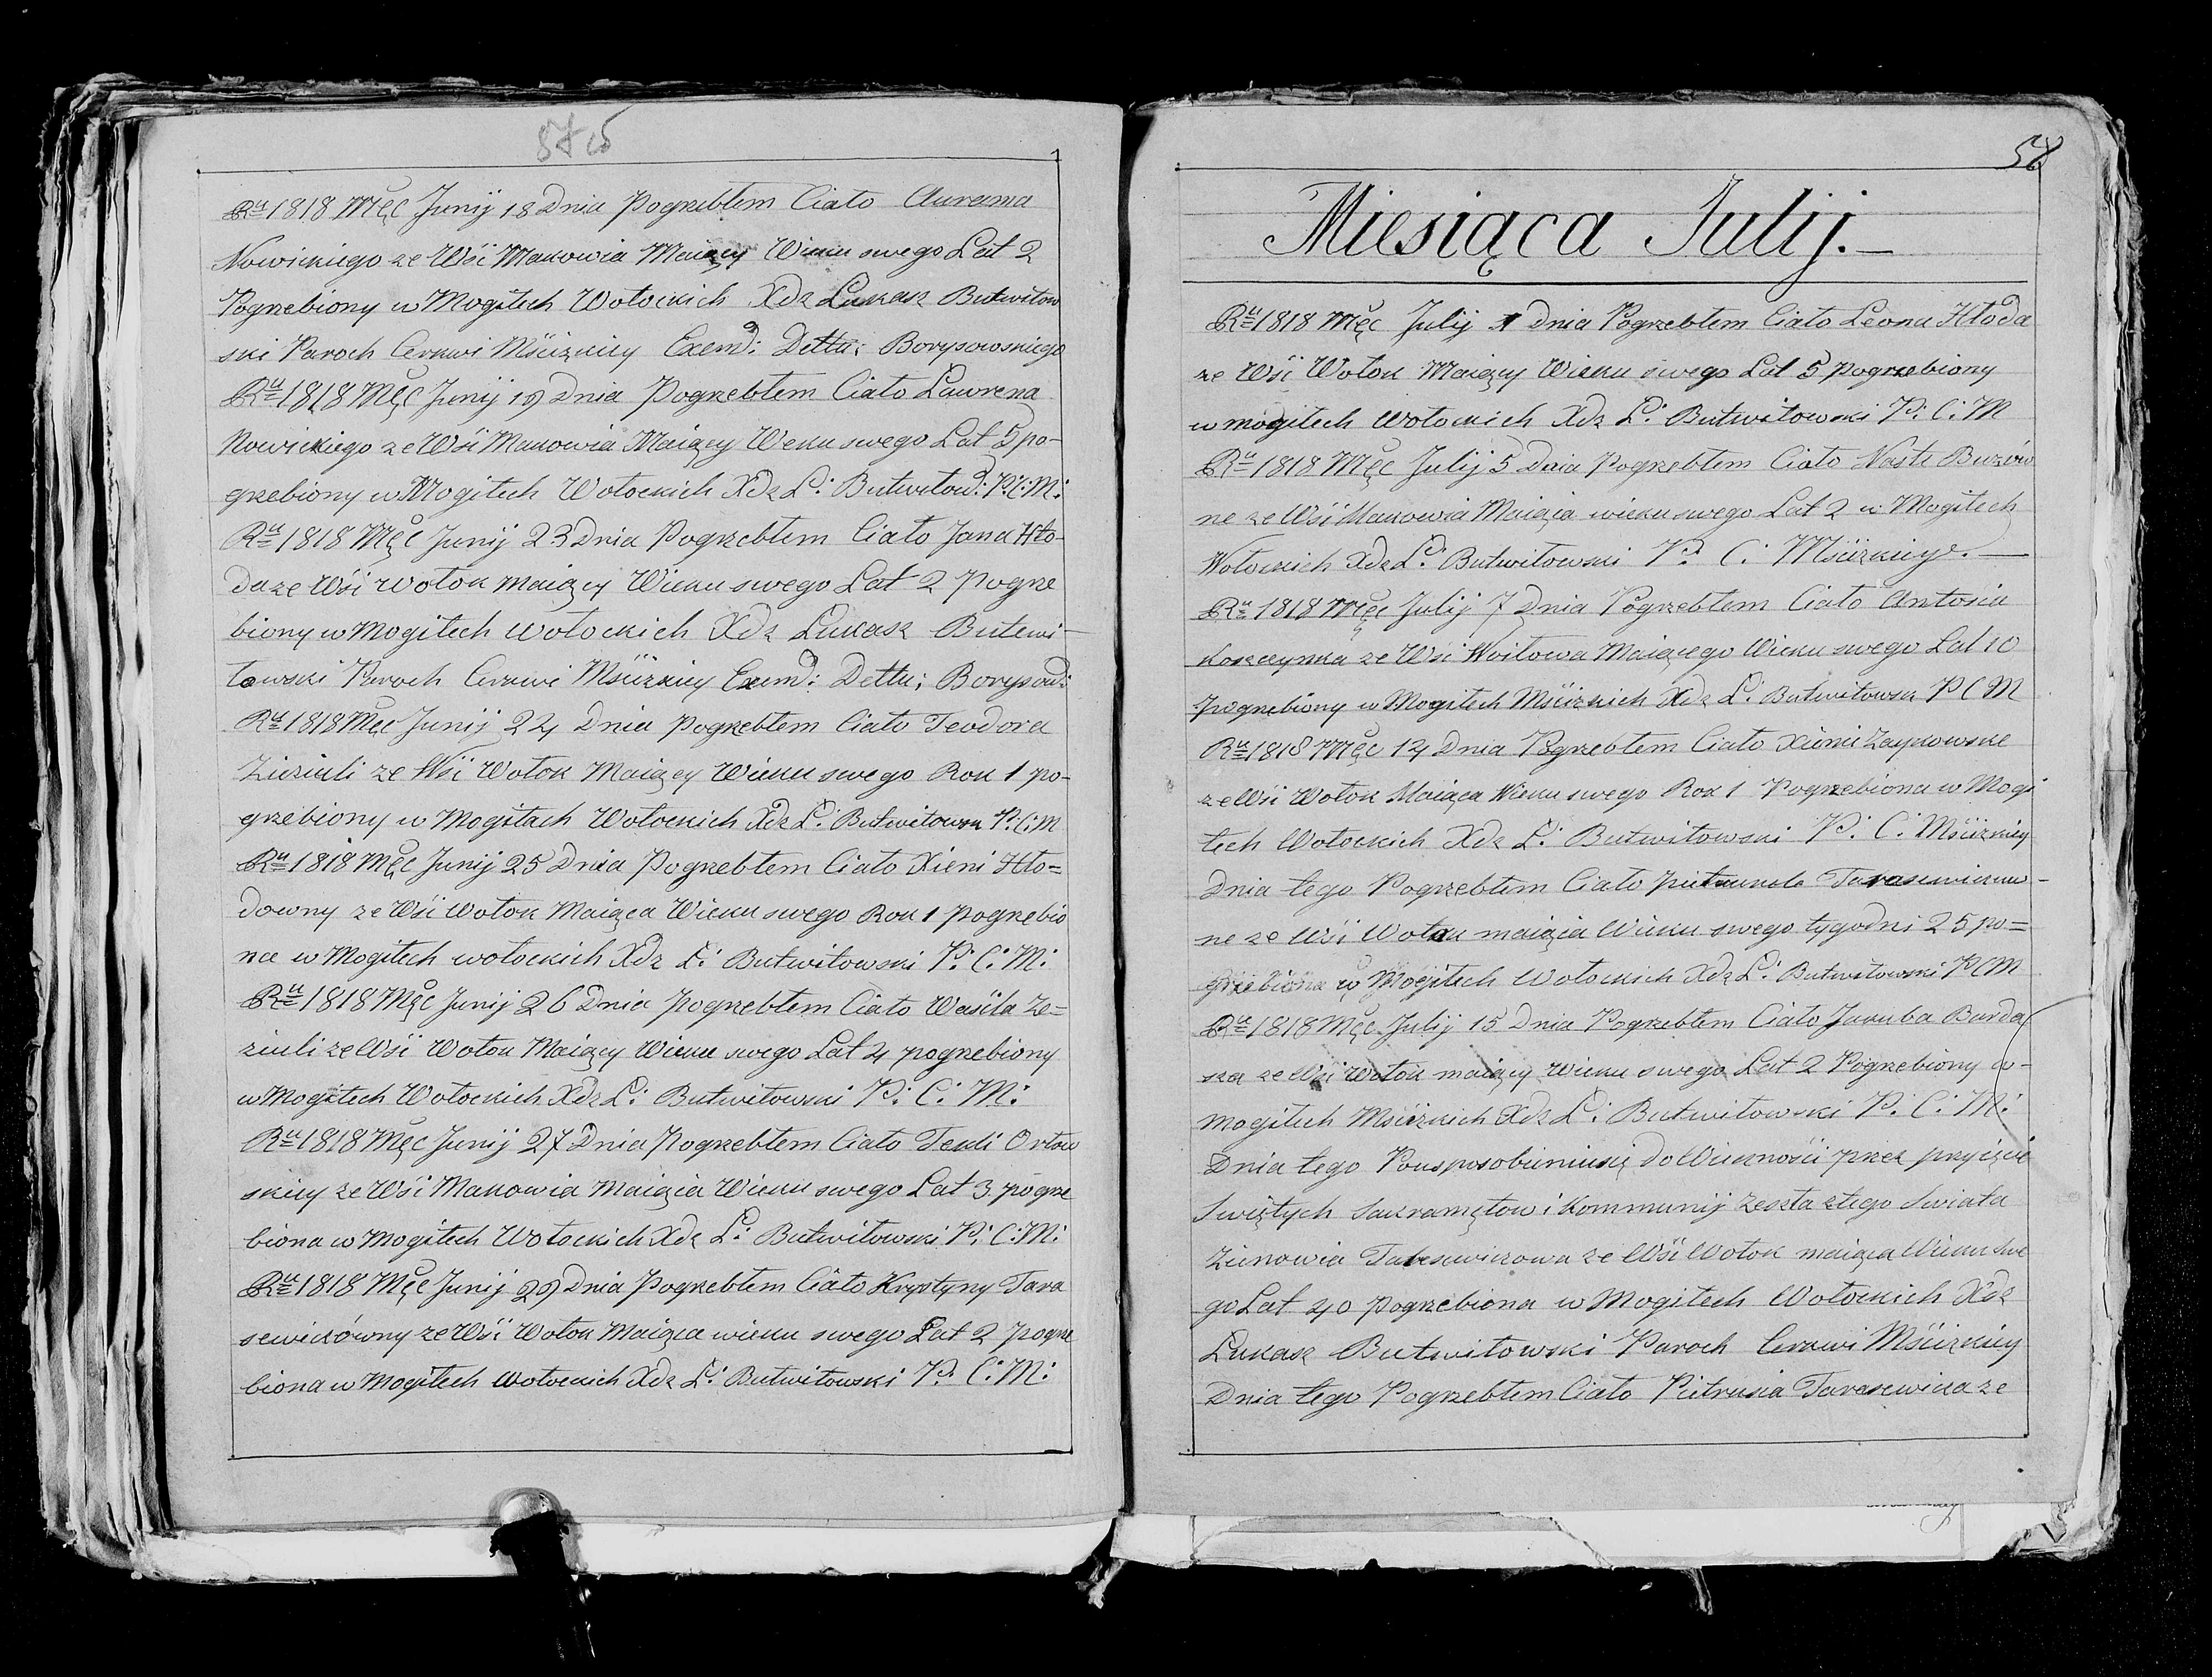 Ru 1818 Męc Junij 18 Dnia Pogrzebłem Ciało Aurama
Nowickiego ze Wśi Makowia Maiący Wieku swego Lat 2
Pogrzebiony w Mogiłech Wołockich Xdz Łukasz Butwiłow
ski Paroch Cerkwi Mściżkiey Exemd: Dettu: Borysowskiego
Ru 1818 Męc Junij 19 Dnia Pogrzebłem Ciało Ławrena
Nowickiego ze Wśi Makowia Maiący Weku swego Lat 5 po-
grzebiony w Mogiłech Wołockich Xdz Ł: Butwiłow: P: C: M:
Ru 1818 Męc Junij 23 Dnia Pogrzebłem Ciało Jana Hło-
da ze Wśi Wołok maiący Wieku swego Lat 2 Pogrze
biony w Mogiłech wołockich Xdz Łukasz Butwi-
łowski Paroch Cerkwi Mściżkiey Exemd: Dettu: Borysow:
Ru 1818 Męc Junij 24 Dnia Pogrzebłem Ciało Teodora
Ziziuli ze Wśi Wołok Maiący Wieku swego Rok 1 po-
grzebiony w Mogiłach Wołockich Xdz Ł: Butwiłowsk P: C: M
Ru 1818 Męc Junij 25 Dnia Pogrzebłem Ciało Xieni Hło=
downy ze Wśi Wołok Maiąca Wieku swego Rok 1 Pogrzebio
na w Mogiłech wołockich Xdz Ł: Butwiłowski P: C: M:
Ru 1818 Męc Junij 26 Dnia Pogrzebłem Ciało Waśila Ze=
ziuli ze Wśi Wołok Maiący Wieku swego Lat 4 pogrzebiony
w Mogiłech Wołockich Xdz Ł: Butwiłowski P: C: M:
Ru 1818 Męc Junij 27 Dnia Pogrzebłem Ciało Tekli Orłow
skiey ze Wśi Makowia Maiąca Wieku swego Lat 3 pogrze
biona w Mogiłech Wołockich Xdz Ł: Butwiłowski P: C: M:
Ru 1818 Męc Junij 29 Dnia Pogrzebłem Ciało Krystyny Tara
sewiczówny ze Wśi Wołok Maiąca wieku swego Lat 2 Pogrze
biona w Mogiłech wołockich Xdz Ł: Butwiłowski P: C: M:
58
Miesiąca Julij.
Ru 1818 Męc Julij 1 Dnia Pogrzebłem Ciało Leona Hłoda
ze Wśi Wołok Maiący Wieku swego Lat 5 pogrzebiony
w mogiłech wołockich Xdz Ł: Butwiłowski P: C: M
Ru 1818 Męc Julij 5 Dnia Pogrzebłem Ciało Nasti Buzów
ne ze Wśi Makowia Maiąca wieku swego Lat 2 w Mogiłech
Wołockich Xdz Ł: Butwiłowski P: C: Mściżkiye.
Ru 1818 Męc Julij 7 Dnia Pogrzebłem Ciało Antosia
Koszczynka ze Wśi Woiłowa Maiącego Wieku swego Lat 10
pogrzebiony w Mogiłech Mściżkich Xdz Ł: Butwiłowsk P C M
Ru 1818 Męc 14 Dnia Pogrzebłem Ciało Xieni Zaykowske
ze Wśi Wołok Maiąca Wieku swego Rok 1 Pogrzebiona w Mogi
łech Wołockich Xdz Ł: Butwiłowski P: C: Mściżkiey
Dnia tego Pogrzebłem Ciało Tarasewiczow-
ne ze Wśi Wołok maiąca Wieku swego tygodni 25 po=
grzebiona w Mogiłech Wołockich Xdz Ł: Butwiłowski P C M
Ru 1818 Męc Julij 15 Dnia Pogrzebłem Ciało Jakuba Burda
ka ze Wśi Wołok maiący wieku swego Lat 2 Pogrzebiony w-
mogiłech Mściżkich Xdz Ł: Butwiłowski P: C: M:
Dnia tego Pousposobieniusię do Wieczności przez przyięcie
Swiętych Sakramętow i Kommunij Zeszła ztego Swiata
Zienowia Tarasewiczowa ze Wśi Wołok maiąca Wieku Swe
go Lat 40 Pogrzebiona w Mogiłech Wołockich Xdz
Łukasz Butwiłowski Paroch Cerkwi Mściżkiey
Dnia tego Pogrzebłem Ciało Pietrusia Tarasewicza ze